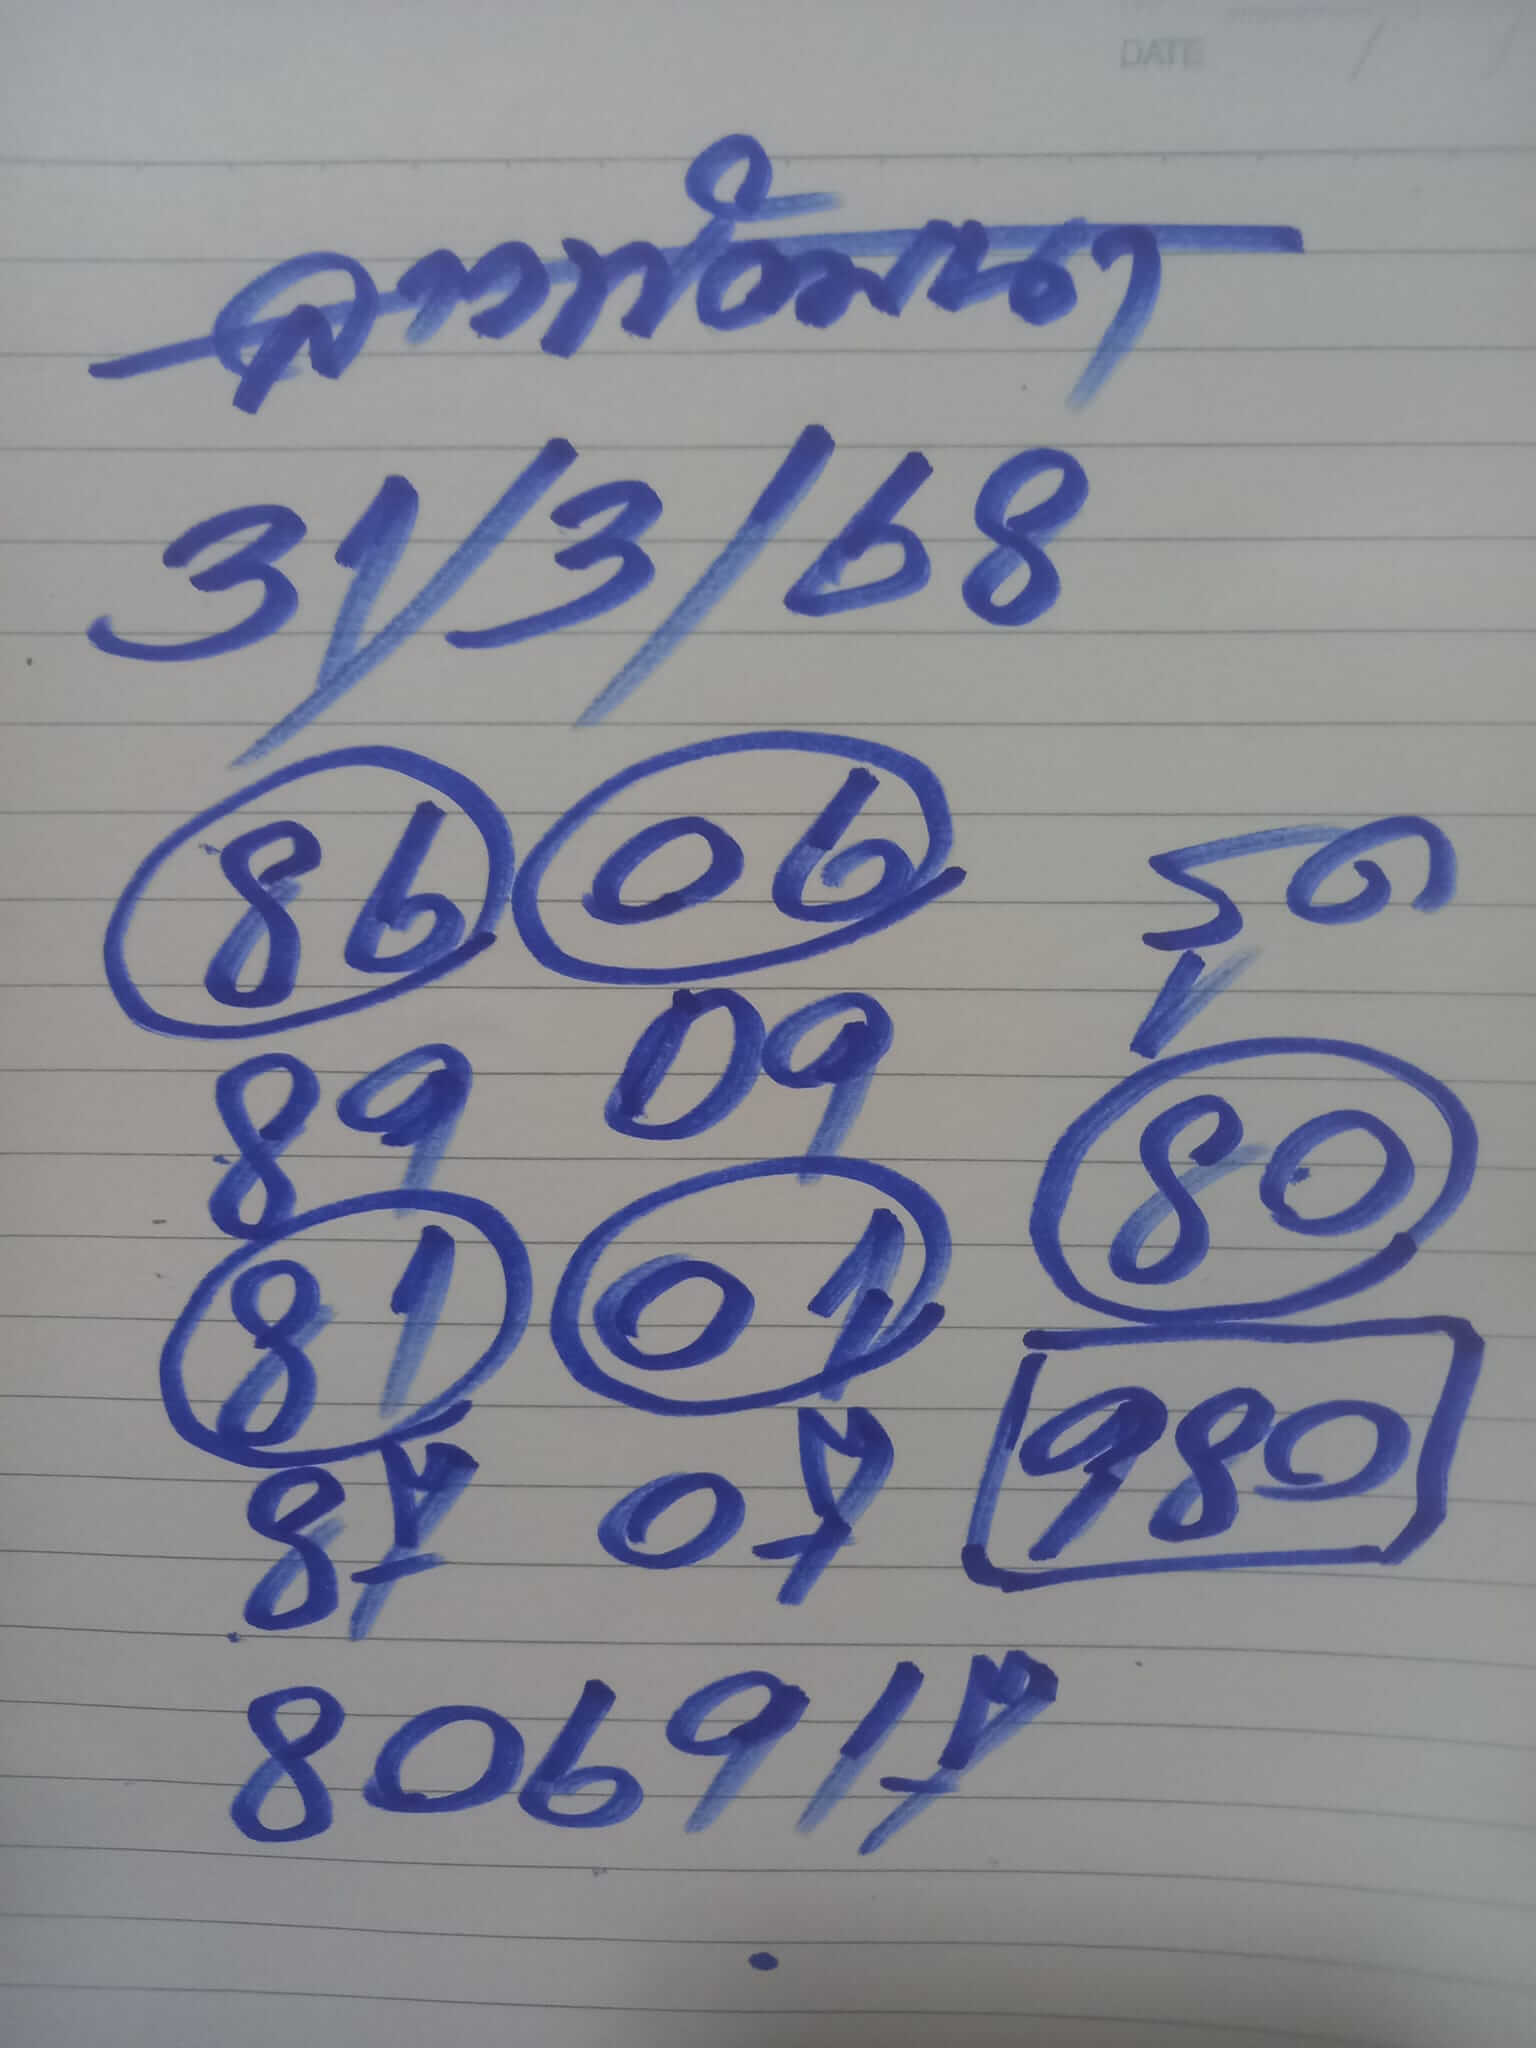 DATE / /
ลาวพัฒนา
31/3/68
86 06 รูด
89 09 80
81 01
87 07 980
806917